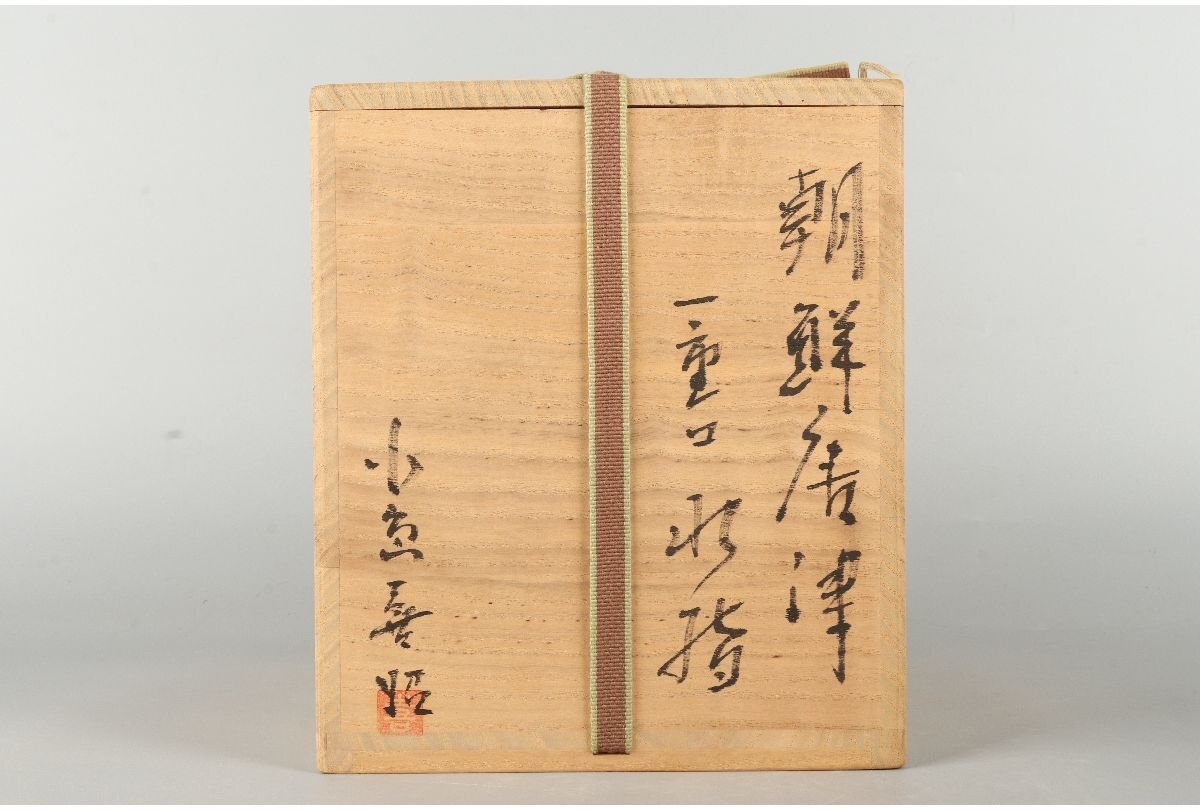 朝鮮唐津
一重口 水指
小